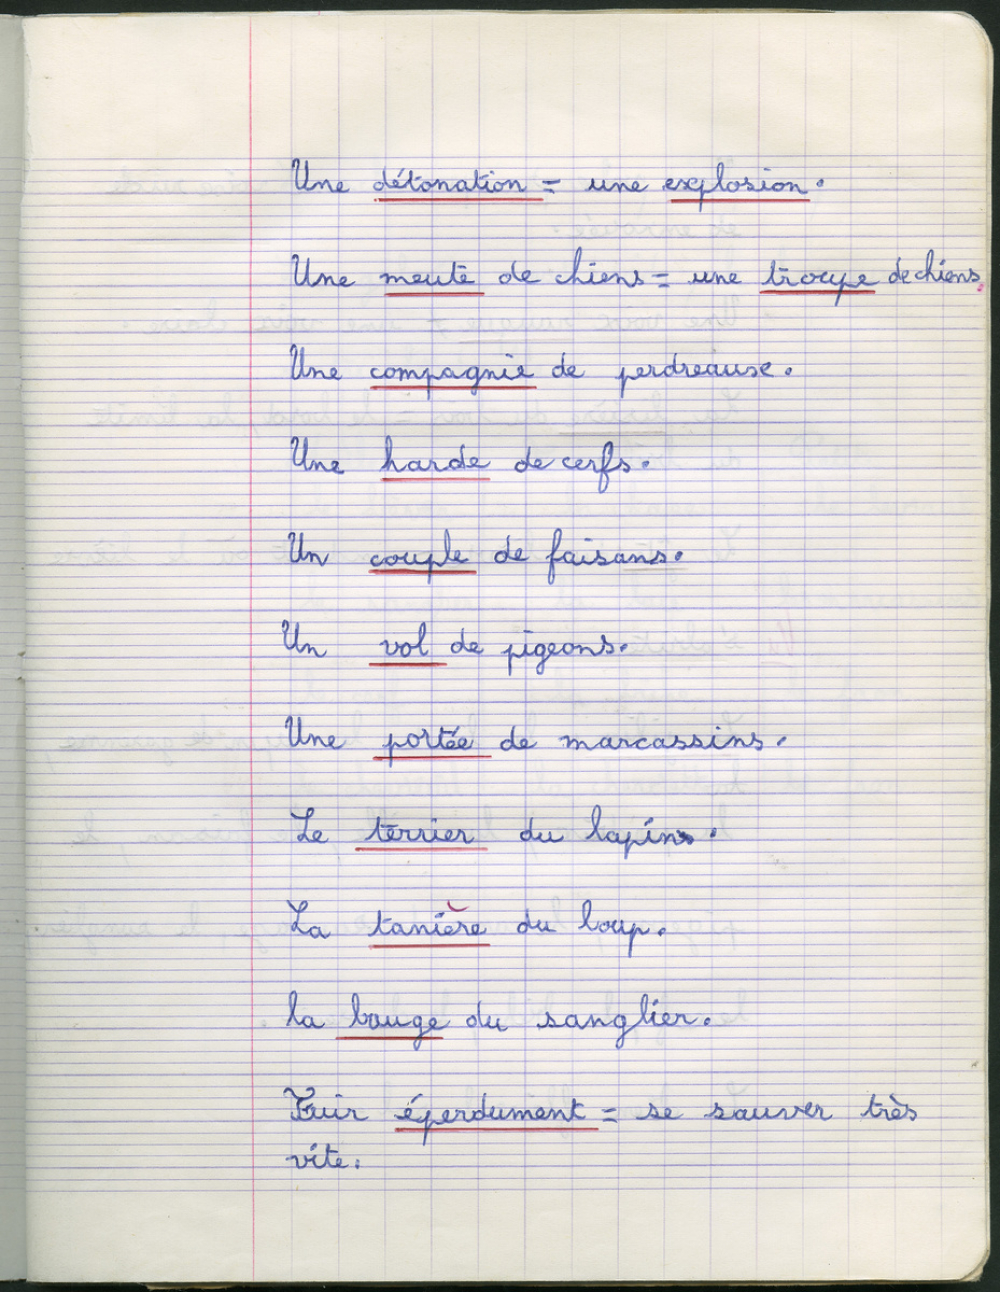 Une détonation = une explosion.
Une meute de chiens = une troupe de chiens.
Une compagnie de perdreause.
Une harde de cerfs.
Un couple de faisans.
Un vol de pigeons.
Une portée de marcassins.
Le terrier du lapin.
La tanière du loup.
la bauge du sanglier.
Fuir éperdument = se sauver très
vite.